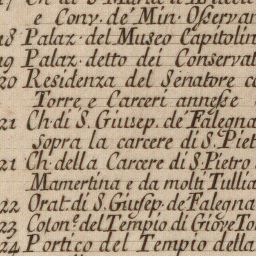 e Conv. de' Min. Osservan
18 Palaz. del Museo Capitolin
19 Palaz. detto dei Conservat
20 Residenza del Senatore c
Torre, e Carceri annesse
21 Ch. di S. Giusep. de' Falegna
sopra la carcere di S. Piet
21 Ch. della Carcere di S. Pietro
Mamertina e da molti Tullia
22 Orat. di S. Giusep. de Falegna
23 Colon.e del Tempio di Giove To
24 Portico del Tempio della